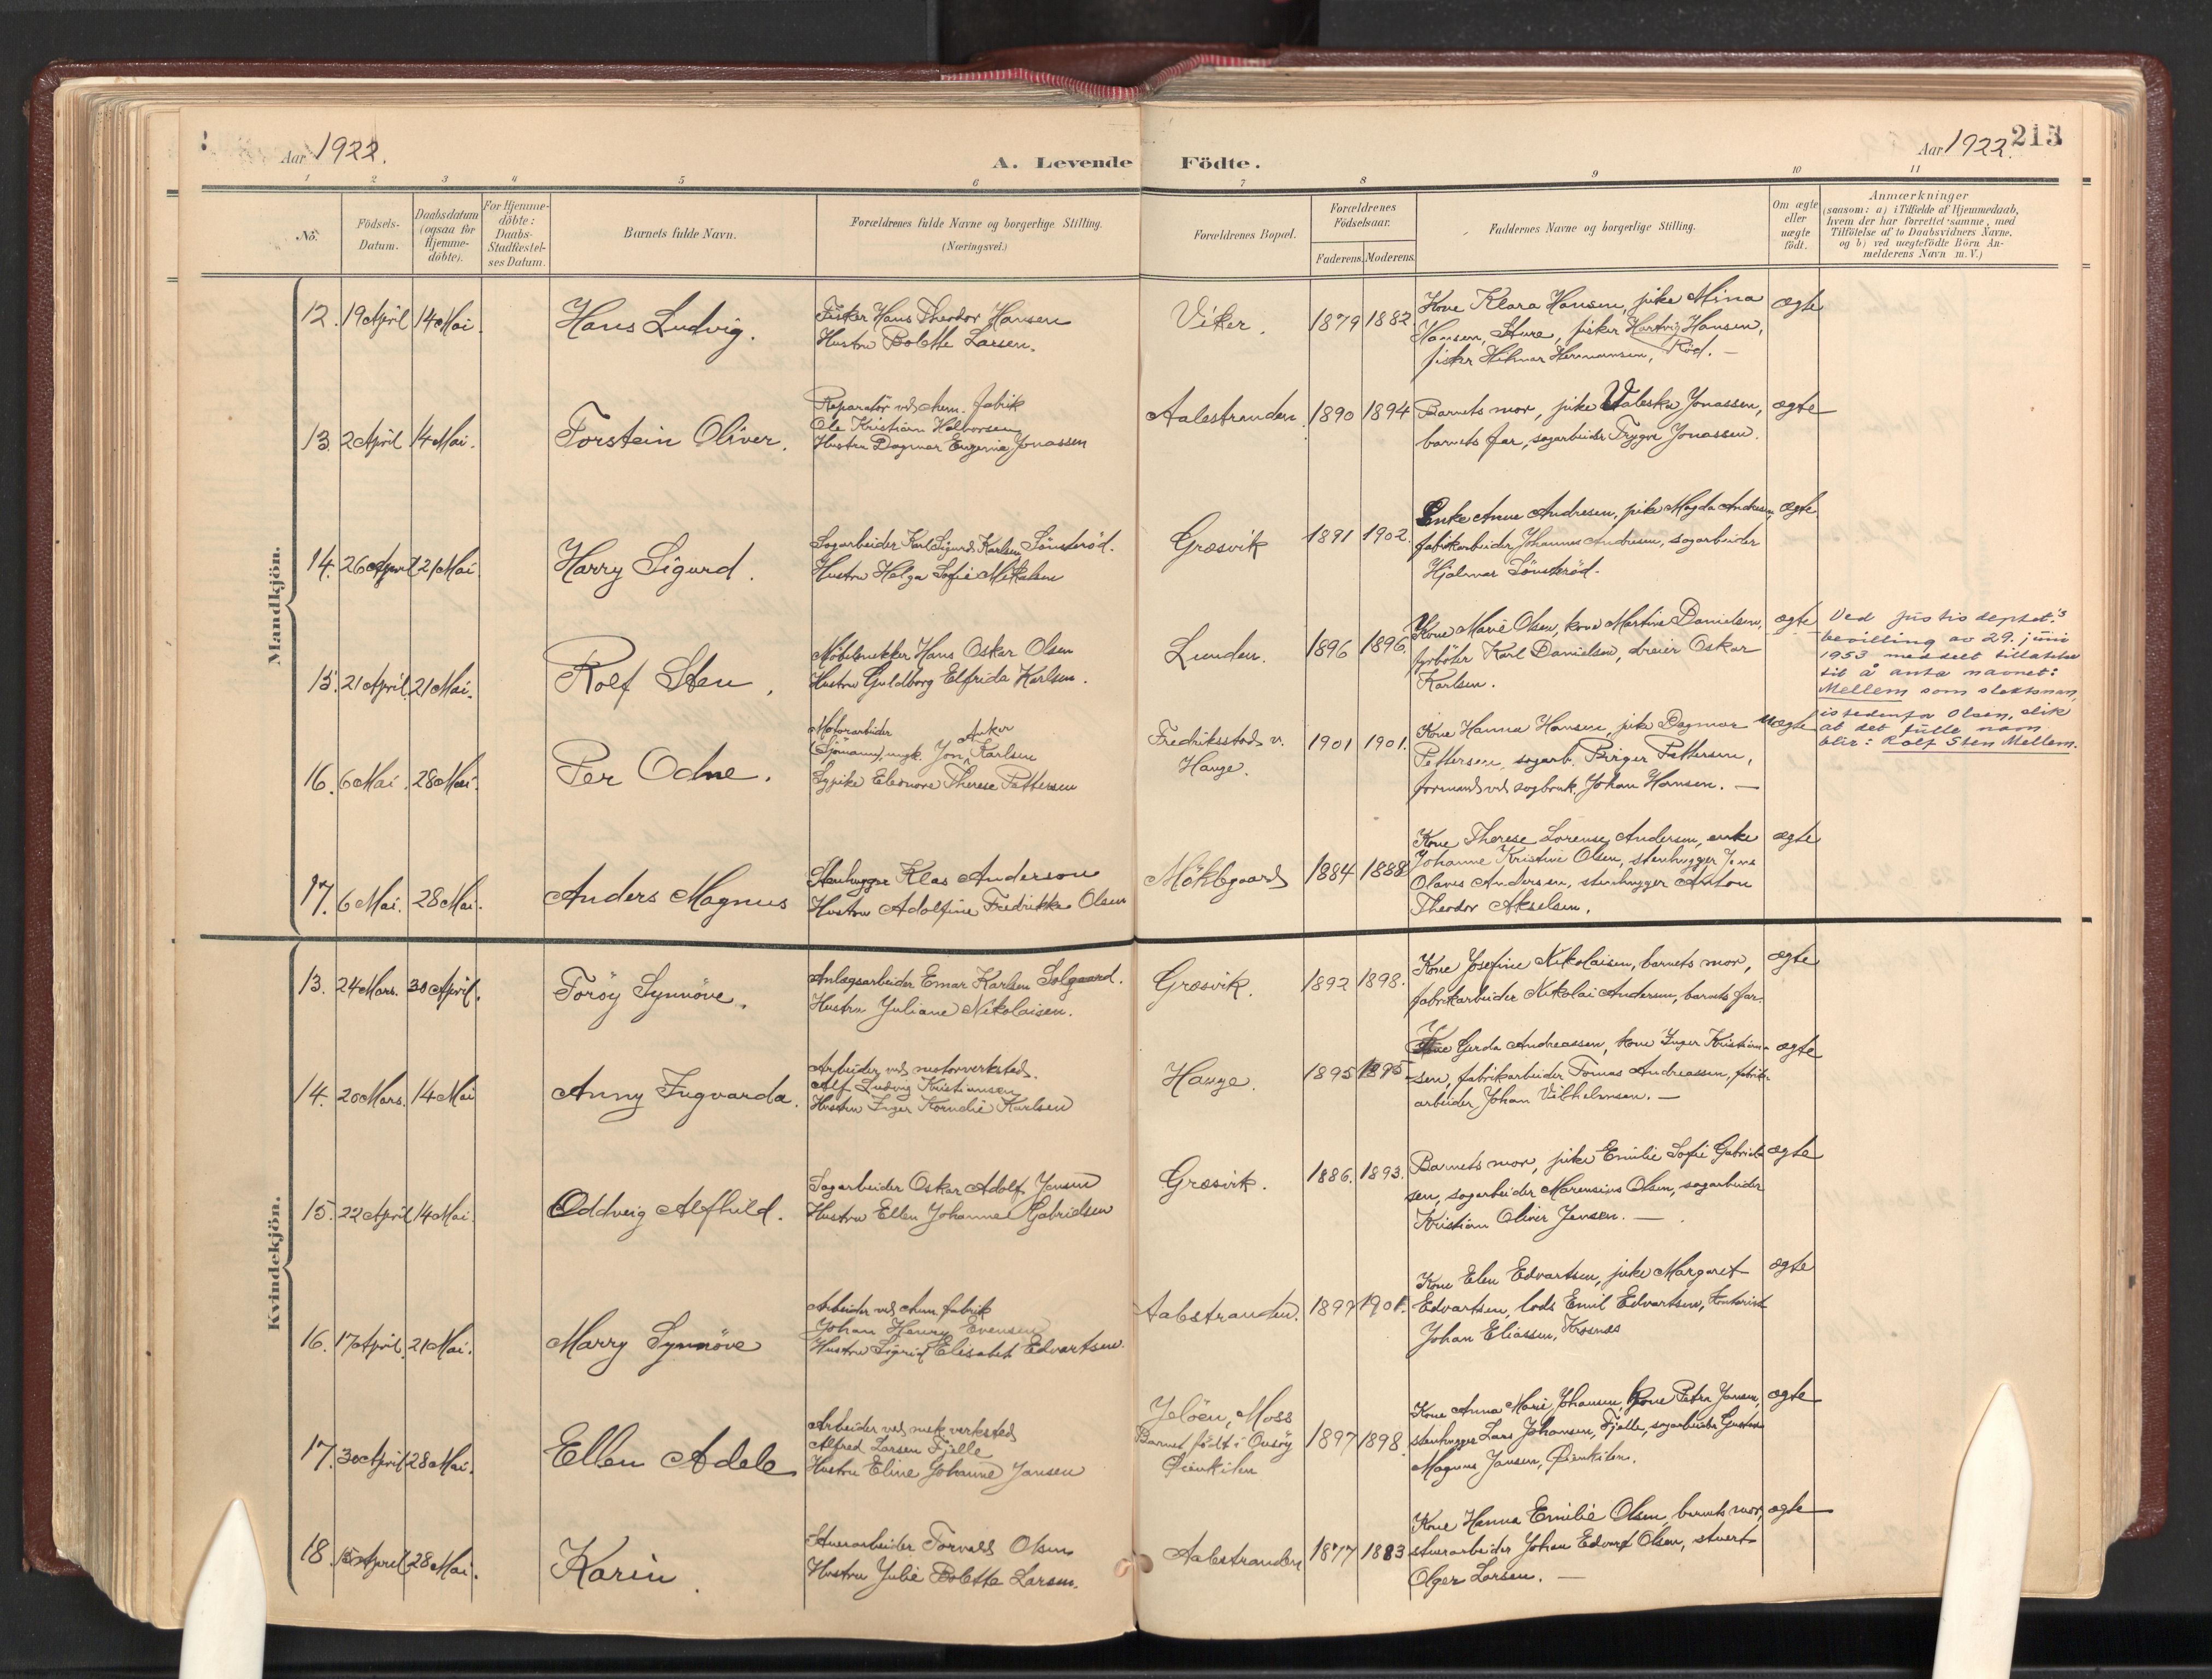 Aar 1922.
A. Levende Födte.
Aar 1922. 213
1 2 3 4 5 6 7 8 9 10 11
No.
Födsels-
Datum.
Daabsdatum
(ogsaa for
Hjemme-
döbte).
For Hjemme-
döbte:
Daabs-
Stadfæstel-
ses Datum.
Barnets fulde Navn.
Forældrenes fulde Navne og borgerlige Stilling.
(Næringsvei.)
Forældrenes Bopæl.
Forældrenes
Födselsaar.
Faderens. Moderens.
Faddernes Navne og borgerlige Stilling.
Om ægte
eller
uægte
födt.
Anmærkninger
(saasom: a) i Tilfælde af Hjemmedaab,
hvem der har forrettet samme, med
Tilföielse af to Daabsvidners Navne,
og b) ved uægtefödte Börn An-
melderens Navn m.V.)
Mandkjön.
12. 19 April 14 Mai. Hans Ludvig.
Fisker Hans Theodor Hansen
Hustru Bolette Larsen.
Viker. 1879 1882.
Kone Klara Hansen, pike Mina
Hansen, Sture, fisker Hartvig Hansen,
fisker Hilmar Hermansen, Röd. —
ægte
13. 2 April 14 Mai. Torstein Oliver.
Reparatör ved chem. fabrik
Ole Kristian Halvorsen
Hustru Dagmar Eugenie Jonassen
Aalestranden. 1890 1894
Barnets mor, pike Valeska Jonassen,
barnets far, sagarbeider Trygve Jonassen.
ægte
14. 26 April 21 Mai. Harry Sigurd.
Sagarbeider Karl Sigurd Karlsen Sönsteröd.
Hustru Helga Sofie Mikalsen
Græsvik 1891 1902.
Enke Anne Andresen, pike Magda Andresen,
fabrikarbeider Johannes Andresen, sagarbeider
Hjalmar Sönsteröd.
ægte.
15. 21 April. 21 Mai. Rolf Sten.
Möbelsnekker Hans Oskar Olsen
Hustru Guldborg Elfrida Karlsen.
Lunden. 1896 1896.
Kone Marie Olsen, kone Martine Danielsen,
fyrböter Karl Danielsen, dreier Oskar
Karlsen.
ægte
Ved justisdeptet's
bevilling av 29. juni
1953 meddelt tillatelse
til å anta navnet:
Mellem som slektsnavn,
istedenfor Olsen, slik
at det fulle navn
blir: Rolf Sten Mellem.
16. 6 Mai. 28 Mai. Per Odne.
Motorarbeider
(Sjömann), ungk. Jon Anker Karlsen
Sypike Eleonore Therese Pettersen
Fredriksstad v.
Hauge.
1901 1901.
Kone Hanna Hansen, pike Dagmar
Pettersen, sagarb. Birger Pettersen,
formand ved sagbruk Johan Hansen. —
uægte
17. 6 Mai. 28 Mai. Anders Magnus
Stenhugger Klas Anderson
Hustru Adolfine Fredrikke Olsen
Möklegaard 1884 1888
Kone Therese Lorense Andersen, enke
Johanne Kristine Olsen, stenhugger Jens
Olaves Andersen, stenhugger Anton
Theodor Akselsen.
ægte
Kvindekjön.
13. 24 Mars. 30 April. Toröy Synnöve.
Anlægsarbeider Emar Karlsen Solgaard.
Hustru Juliane Nikolaisen.
Græsvik. 1892 1898.
Kone Josefine Nikolaisen, barnets mor,
fabrikarbeider Nikolai Andersen, barnets far.
ægte
14. 20 Mars. 14 Mai Anny Ingvarda.
Arbeider ved motorverksted.
Alf Ludvig Kristiansen
Hustru Inger Kornelie Karlsen
Hauge. 1895 1895
Kone Gerda Andreassen, kone Inger Kristian-
sen, fabrikarbeider Tomas Andreassen, fabrik-
arbeider Johan Vilhelmsen. —
ægte
15. 22 April 14 Mai. Oddveig Alfhild.
Sagarbeider Oskar Adolf Jensen
Hustru Ellen Johanne Gabrielsen
Græsvik. 1886. 1893.
Barnets mor, pike Emilie Sofie Gabriel-
sen, sagarbeider Marensius Olsen, sagarbeider
Kristian Oliver Jensen. —
ægte
16. 17 April. 21 Mai. Marry Synnöve
Arbeider ved chem. fabrik
Johan Henry Evensen
Hustru Sigrid Elisabet Edvartsen.
Aalestranden. 1897 1901.
Kone Elen Edvartsen, pike Margaret
Edvartsen, lods Emil Edvartsen, kontorist
Johan Eliassen, Krosnæs
ægte
17. 30 April 28 Mai. Ellen Adele
Arbeider ved mek. verksted
Alfred Larsen Fjelle
Hustru Eline Johanne Jansen
Jelöen, Moss
Barnet född i Onsöy
Öienkilen
1897 1898.
Kone Anna Marie Johansen, kone Petra Jansen,
stenhugger Lars Johansen, Fjelle, sagarbeider Gustav
Magnus Jansen, Öienkilen.
ægte
18. 15 April 28 Mai. Karin.
Stuerarbeider Torvald Olsen
Hustru Julie Bolette Larsen.
Aalestranden 1877 1883
Kone Hanna Emilie Olsen, barnets mor,
stuerarbeider Johan Edvard Olsen, stuert
Olger Larsen. —
ægte